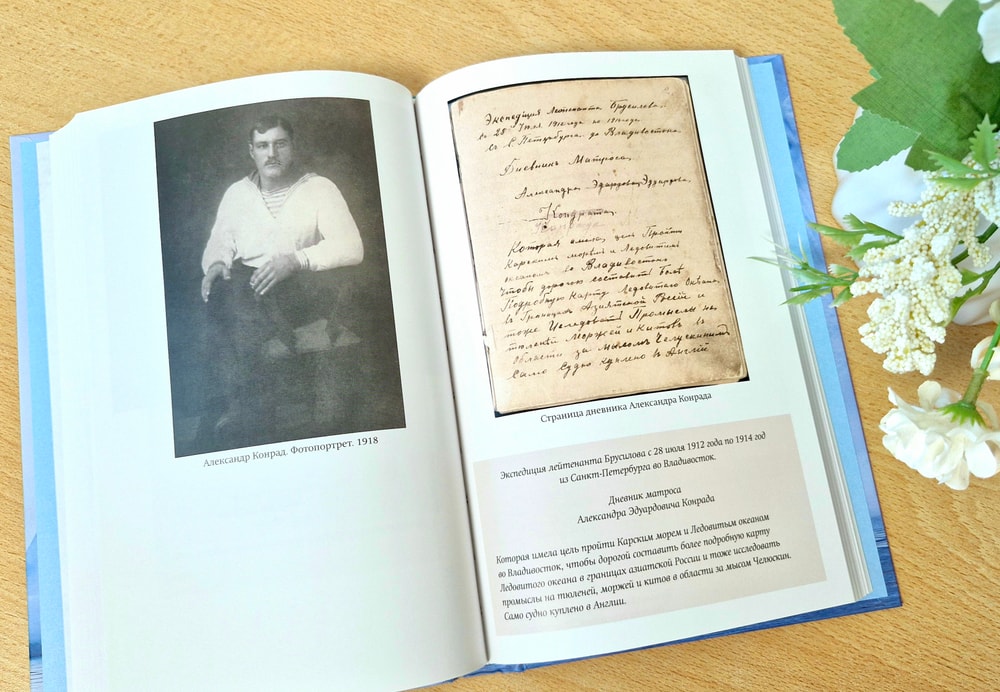 Александр Конрад. Фотопортрет. 1918
Экспедиция Лейтенанта Брусилова.
28 Июля 1912 года по 1914
С.Петербурга до Владивостока.
Дневник Матроса,
Александра
Которая имела цель Пройти
Карским морем и Ледовитым
океаном во Владивосток
Чтобы дорогою составить болѣ
Подробную Карту Ледовитого Океана,
в Границах Азиятской Россіи и
тоже Изследовать Промыслы на
тюленей Моржей и Китов в
области за мысом Челускиным
Само Судно куплено в Англіи
Страница дневника Александра Конрада
Экспедиция лейтенанта Брусилова с 28 июля 1912 года по 1914 год
из Санкт-Петербурга во Владивосток.
Дневник матроса
Александра Эдуардовича Конрада
Которая имела цель пройти Карским морем и Ледовитым океаном
во Владивосток, чтобы дорогой составить более подробную карту
Ледовитого океана в границах азиатской России и тоже исследовать
промыслы на тюленей, моржей и китов в области за мысом Челюскин.
Само судно куплено в Англии.